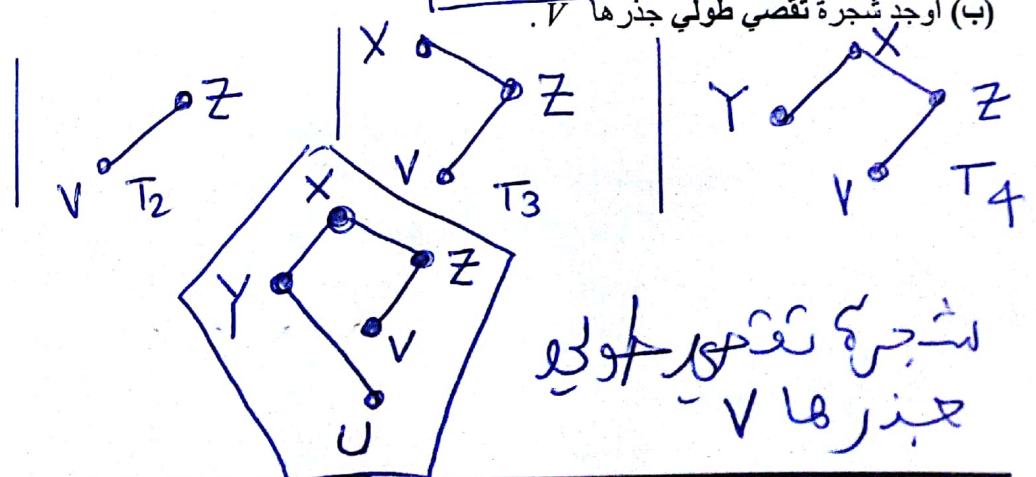 (ب) اوجد شجرة تقصي طولي جذرها V.
Z
V T2
X
Z
V T3
X
Y Z
V T4
X
Y Z
V
U
شجرة تقصي طولي
جذرها V